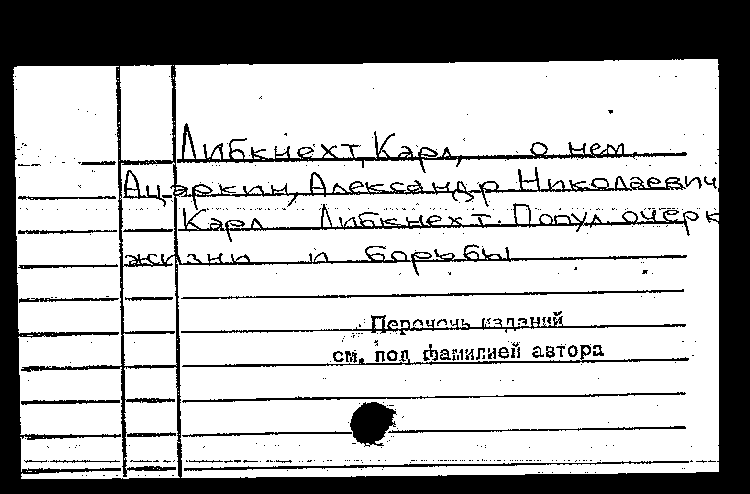 Либкнехт, Карл, о нем.
Ацаркин, Александр Николаевич
Карл Либкнехт. Попул. очерк
жизни и борьбы
Перечень изданий
см. под фамилией автора